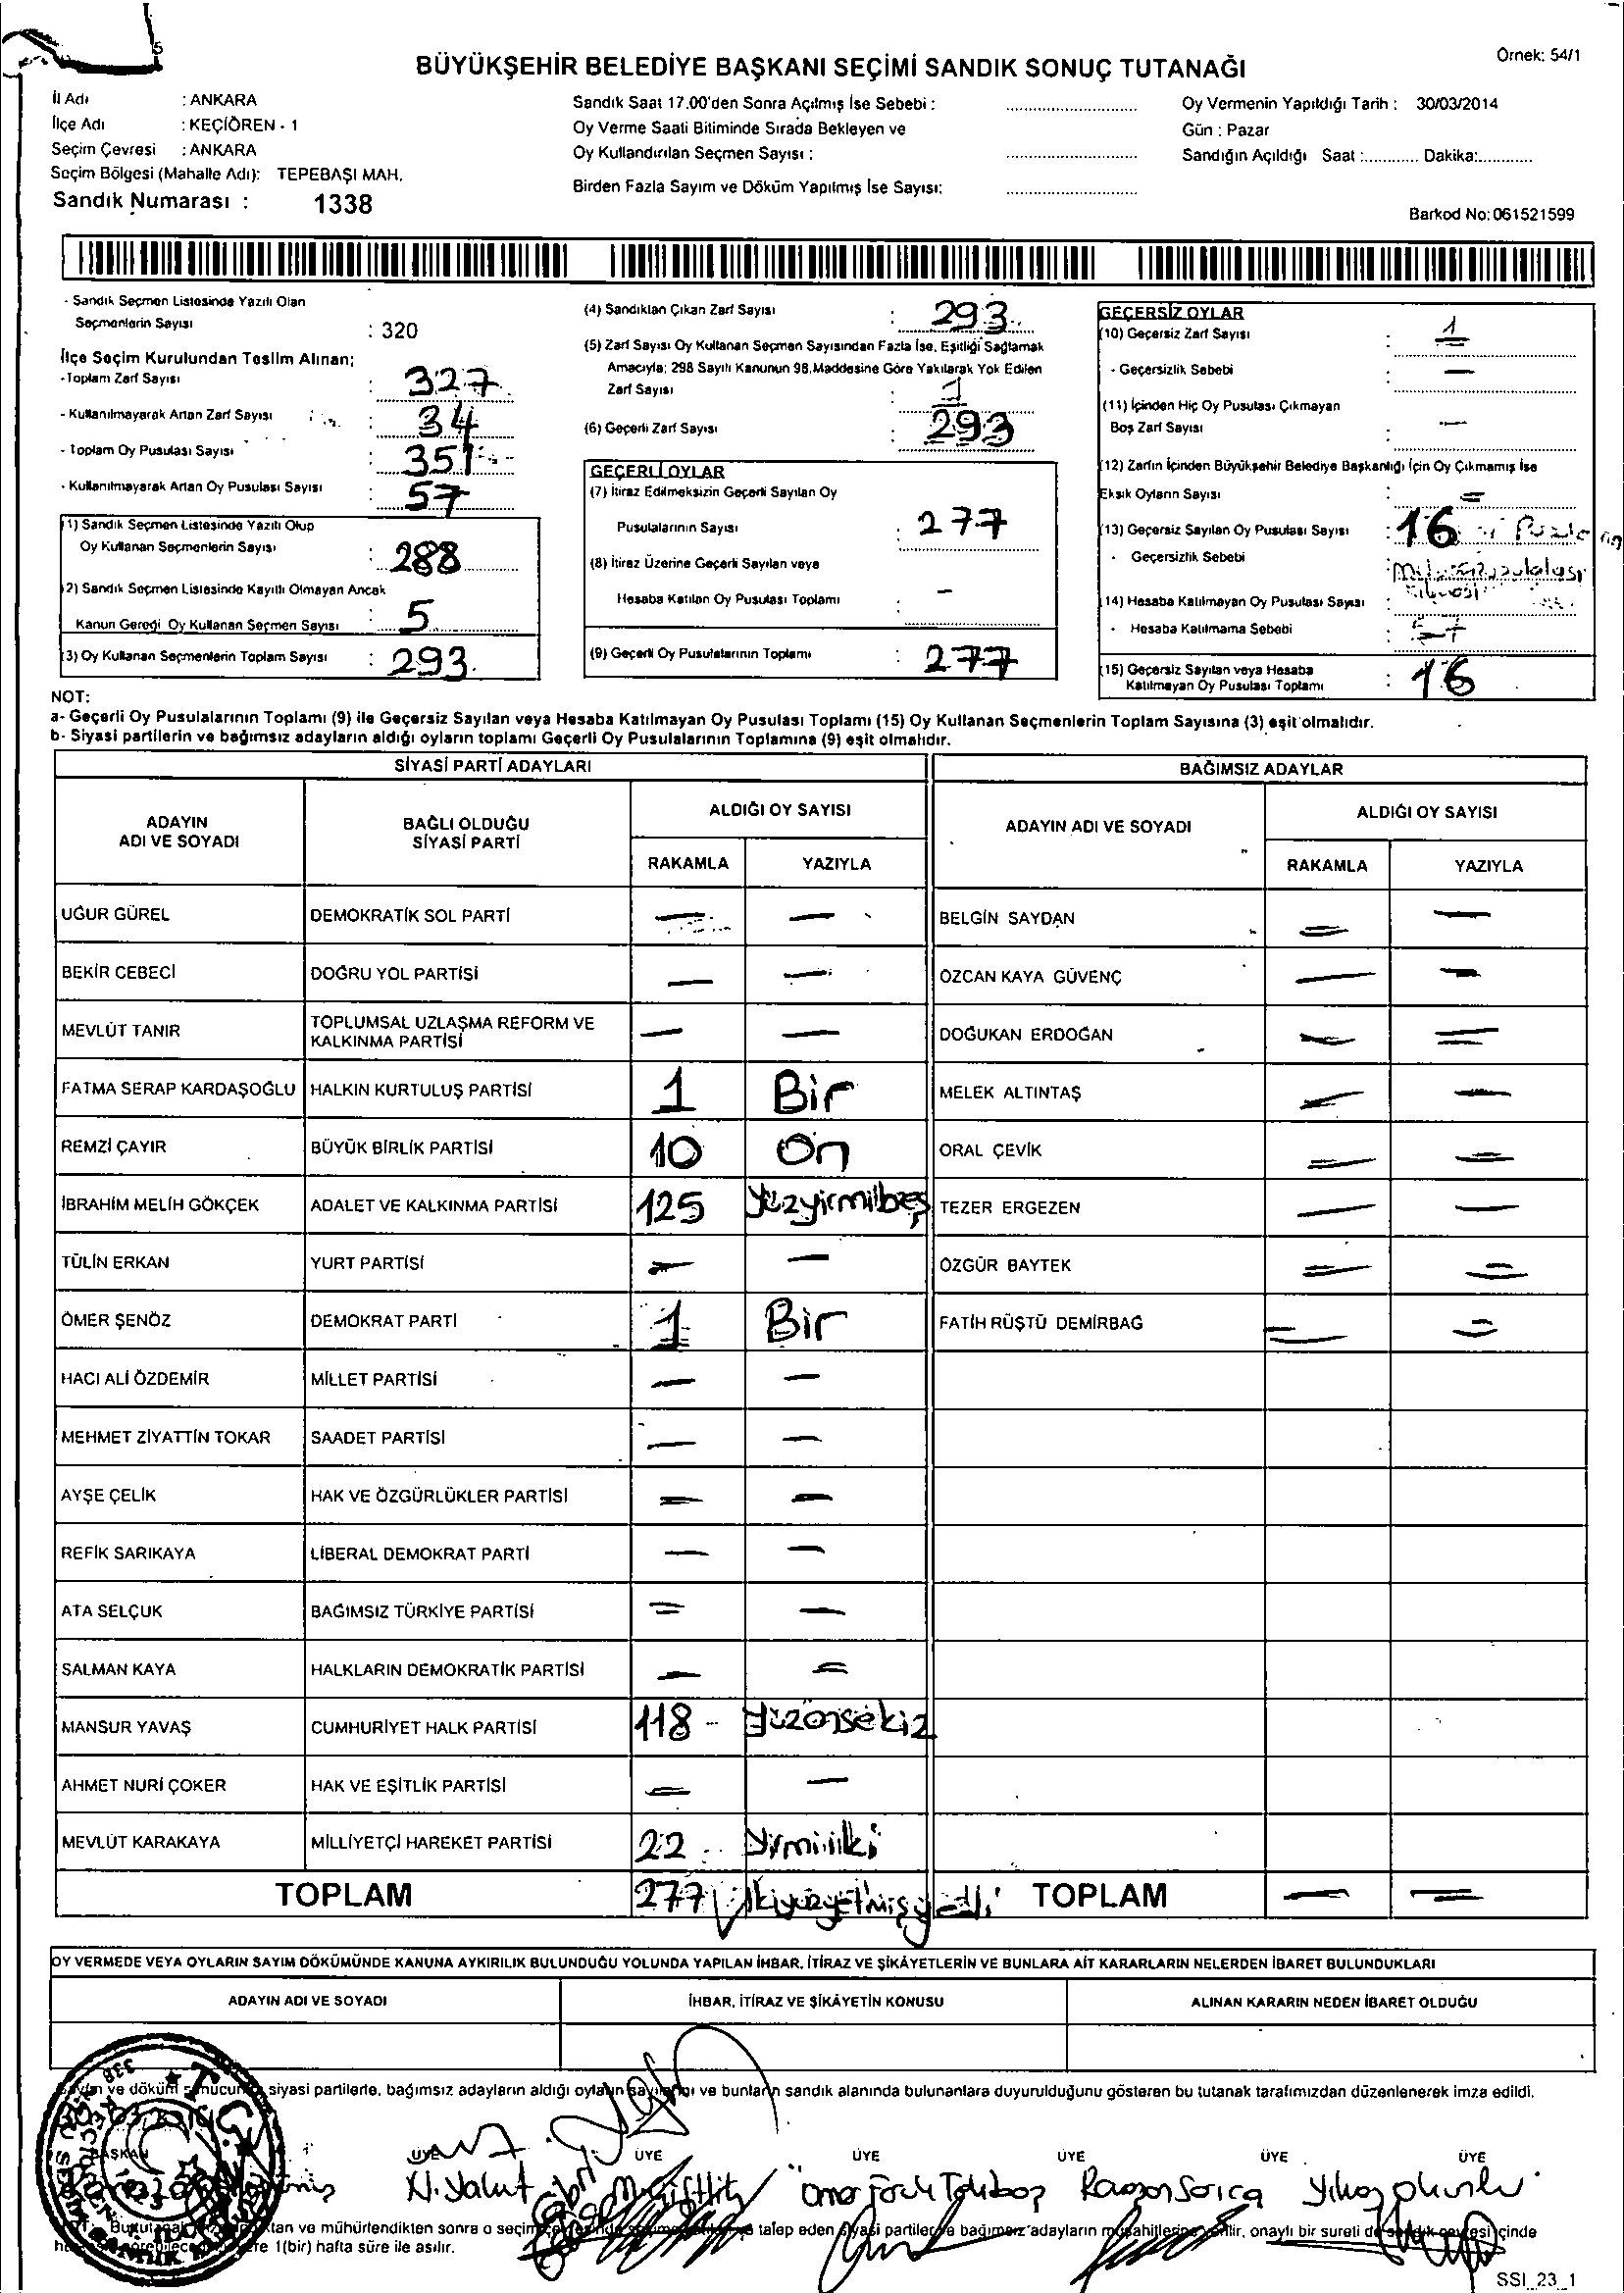 Örnek: 54/1
BÜYÜKŞEHİR BELEDİYE BAŞKANI SEÇİMİ SANDIK SONUÇ TUTANAĞI
İl Adı : ANKARA
İlçe Adı : KEÇİÖREN - 1
Seçim Çevresi : ANKARA
Seçim Bölgesi (Mahalle Adı): TEPEBAŞI MAH.
Sandık Numarası : 1338
Sandık Saat 17.00'den Sonra Açılmış İse Sebebi :
Oy Verme Saati Bitiminde Sırada Bekleyen ve
Oy Kullandırılan Seçmen Sayısı :
Birden Fazla Sayım ve Döküm Yapılmış İse Sayısı:
Oy Vermenin Yapıldığı Tarih : 30/03/2014
Gün : Pazar
Sandığın Açıldığı Saat :............ Dakika:............
Barkod No: 061521599
- Sandık Seçmen Listesinde Yazılı Olan
Seçmenlerin Sayısı : 320
İlçe Seçim Kurulundan Teslim Alınan;
-Toplam Zarf Sayısı : 327
- Kullanılmayarak Artan Zarf Sayısı : 34
- Toplam Oy Pusulası Sayısı : 351
- Kullanılmayarak Artan Oy Pusulası Sayısı : 57
(1) Sandık Seçmen Listesinde Yazılı Olup
Oy Kullanan Seçmenlerin Sayısı : 288
(2) Sandık Seçmen Listesinde Kayıtlı Olmayan Ancak
Kanun Gereği Oy Kullanan Seçmen Sayısı : 5
(3) Oy Kullanan Seçmenlerin Toplam Sayısı : 293
(4) Sandıktan Çıkan Zarf Sayısı : 293
(5) Zarf Sayısı Oy Kullanan Seçmen Sayısından Fazla İse, Eşitliği Sağlamak
Amacıyla; 298 Sayılı Kanunun 98.Maddesine Göre Yakılarak Yok Edilen
Zarf Sayısı : 1
(6) Geçerli Zarf Sayısı : 293
GEÇERLİ OYLAR
(7) İtiraz Edilmeksizin Geçerli Sayılan Oy
Pusulalarının Sayısı : 277
(8) İtiraz Üzerine Geçerli Sayılan veya
Hesaba Katılan Oy Pusulası Toplamı : -
(9) Geçerli Oy Pusulalarının Toplamı : 277
GEÇERSİZ OYLAR
(10) Geçersiz Zarf Sayısı : 1
- Geçersizlik Sebebi : -
(11) İçinden Hiç Oy Pusulası Çıkmayan
Boş Zarf Sayısı : -
(12) Zarfın İçinden Büyükşehir Belediye Başkanlığı İçin Oy Çıkmamış İse
Eksik Oyların Sayısı : =
(13) Geçersiz Sayılan Oy Pusulası Sayısı : 16
- Geçersizlik Sebebi :
(14) Hesaba Katılmayan Oy Pusulası Sayısı :
- Hesaba Katılmama Sebebi :
(15) Geçersiz Sayılan veya Hesaba
Katılmayan Oy Pusulası Toplamı : 16
NOT:
a- Geçerli Oy Pusulalarının Toplamı (9) ile Geçersiz Sayılan veya Hesaba Katılmayan Oy Pusulası Toplamı (15) Oy Kullanan Seçmenlerin Toplam Sayısına (3) eşit olmalıdır.
b- Siyasi partilerin ve bağımsız adayların aldığı oyların toplamı Geçerli Oy Pusulalarının Toplamına (9) eşit olmalıdır.
SİYASİ PARTİ ADAYLARI
ADAYIN ADI VE SOYADI BAĞLI OLDUĞU SİYASİ PARTİ ALDIĞI OY SAYISI
RAKAMLA YAZIYLA
UĞUR GÜREL DEMOKRATİK SOL PARTİ — —
BEKİR CEBECİ DOĞRU YOL PARTİSİ — —
MEVLÜT TANIR TOPLUMSAL UZLAŞMA REFORM VE KALKINMA PARTİSİ — —
FATMA SERAP KARDAŞOĞLU HALKIN KURTULUŞ PARTİSİ 1 Bir
REMZİ ÇAYIR BÜYÜK BİRLİK PARTİSİ 10 On
İBRAHİM MELİH GÖKÇEK ADALET VE KALKINMA PARTİSİ 125 Yüzyirmibeş
TÜLİN ERKAN YURT PARTİSİ — —
ÖMER ŞENÖZ DEMOKRAT PARTİ 1 Bir
HACI ALİ ÖZDEMİR MİLLET PARTİSİ — —
MEHMET ZİYATTİN TOKAR SAADET PARTİSİ — —
AYŞE ÇELİK HAK VE ÖZGÜRLÜKLER PARTİSİ — —
REFİK SARIKAYA LİBERAL DEMOKRAT PARTİ — —
ATA SELÇUK BAĞIMSIZ TÜRKİYE PARTİSİ = —
SALMAN KAYA HALKLARIN DEMOKRATİK PARTİSİ — =
MANSUR YAVAŞ CUMHURİYET HALK PARTİSİ 118 - Yüzonsekiz
AHMET NURİ ÇOKER HAK VE EŞİTLİK PARTİSİ = —
MEVLÜT KARAKAYA MİLLİYETÇİ HAREKET PARTİSİ 22 Yirmiiki
TOPLAM 277 İkiyüzyetmişyedi
BAĞIMSIZ ADAYLAR
ADAYIN ADI VE SOYADI ALDIĞI OY SAYISI
RAKAMLA YAZIYLA
BELGİN SAYDAN = —
ÖZCAN KAYA GÜVENÇ — —
DOĞUKAN ERDOĞAN — =
MELEK ALTINTAŞ — —
ORAL ÇEVİK = =
TEZER ERGEZEN — —
ÖZGÜR BAYTEK = =
FATİH RÜŞTÜ DEMİRBAĞ = =
TOPLAM — =
OY VERMEDE VEYA OYLARIN SAYIM DÖKÜMÜNDE KANUNA AYKIRILIK BULUNDUĞU YOLUNDA YAPILAN İHBAR, İTİRAZ VE ŞİKÂYETLERİN VE BUNLARA AİT KARARLARIN NELERDEN İBARET BULUNDUKLARI
ADAYIN ADI VE SOYADI İHBAR, İTİRAZ VE ŞİKÂYETİN KONUSU ALINAN KARARIN NEDEN İBARET OLDUĞU
ve döküm siyasi partilerle, bağımsız adayların aldığı ve bunların sandık alanında bulunanlara duyurulduğunu gösteren bu tutanak tarafımızdan düzenlenerek imza edildi.
BAŞKAN ÜYE ÜYE ÜYE ÜYE ÜYE ÜYE
N. Yakut
ve mühürlendikten sonra o seçim talep eden siyasi partiler bağımsız adayların onaylı bir sureti içinde
1(bir) hafta süre ile asılır.
SSI_23_1